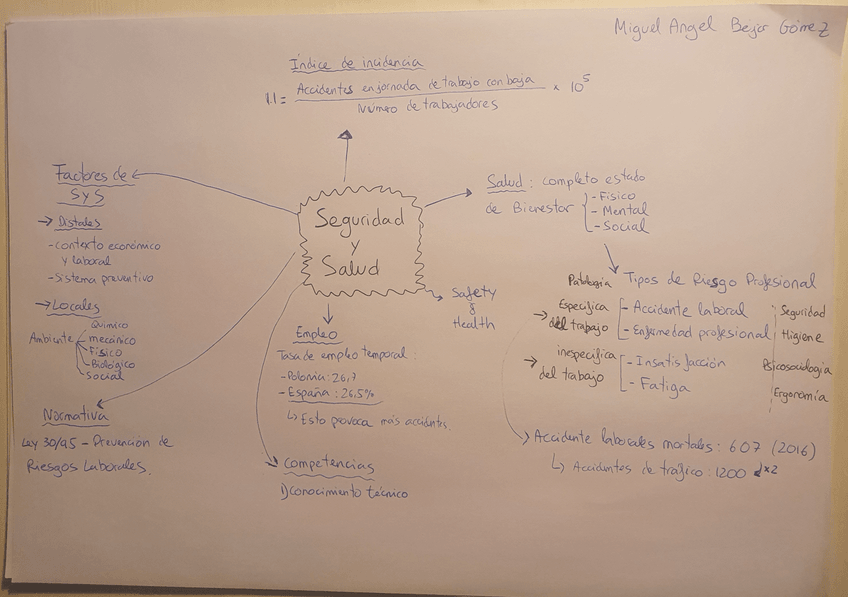 Miguel Angel Bejar Gómez
Índice de incidencia
I.I = Accidentes en jornada de trabajo con baja × 10⁵
Número de trabajadores
Factores de
SyS
→ Distales
- contexto económico
y laboral
- Sistema preventivo
→ Locales
Ambiente
Químico
mecánico
Físico
Biológico
social
Normativa
Ley 30/95 - Prevención de
Riesgos Laborales.
Seguridad
y
Salud
Safety
&
Health
Empleo
Tasa de empleo temporal:
- Polonia: 26,7
- España: 26,5%
↳ Esto provoca más accidentes.
Competencias
1) Conocimiento técnico
Salud: completo estado
de Bienestar
- Físico
- Mental
- Social
Patología Tipos de Riesgo Profesional
→ Específica
del trabajo
- Accidente laboral
- Enfermedad profesional
→ inespecífica
del trabajo
- Insatisfacción
- Fatiga
Seguridad
Higiene
Psicosociología
Ergonomía
Accidente laborales mortales: 607 (2016)
↳ Accidentes de tráfico: 1200 x2